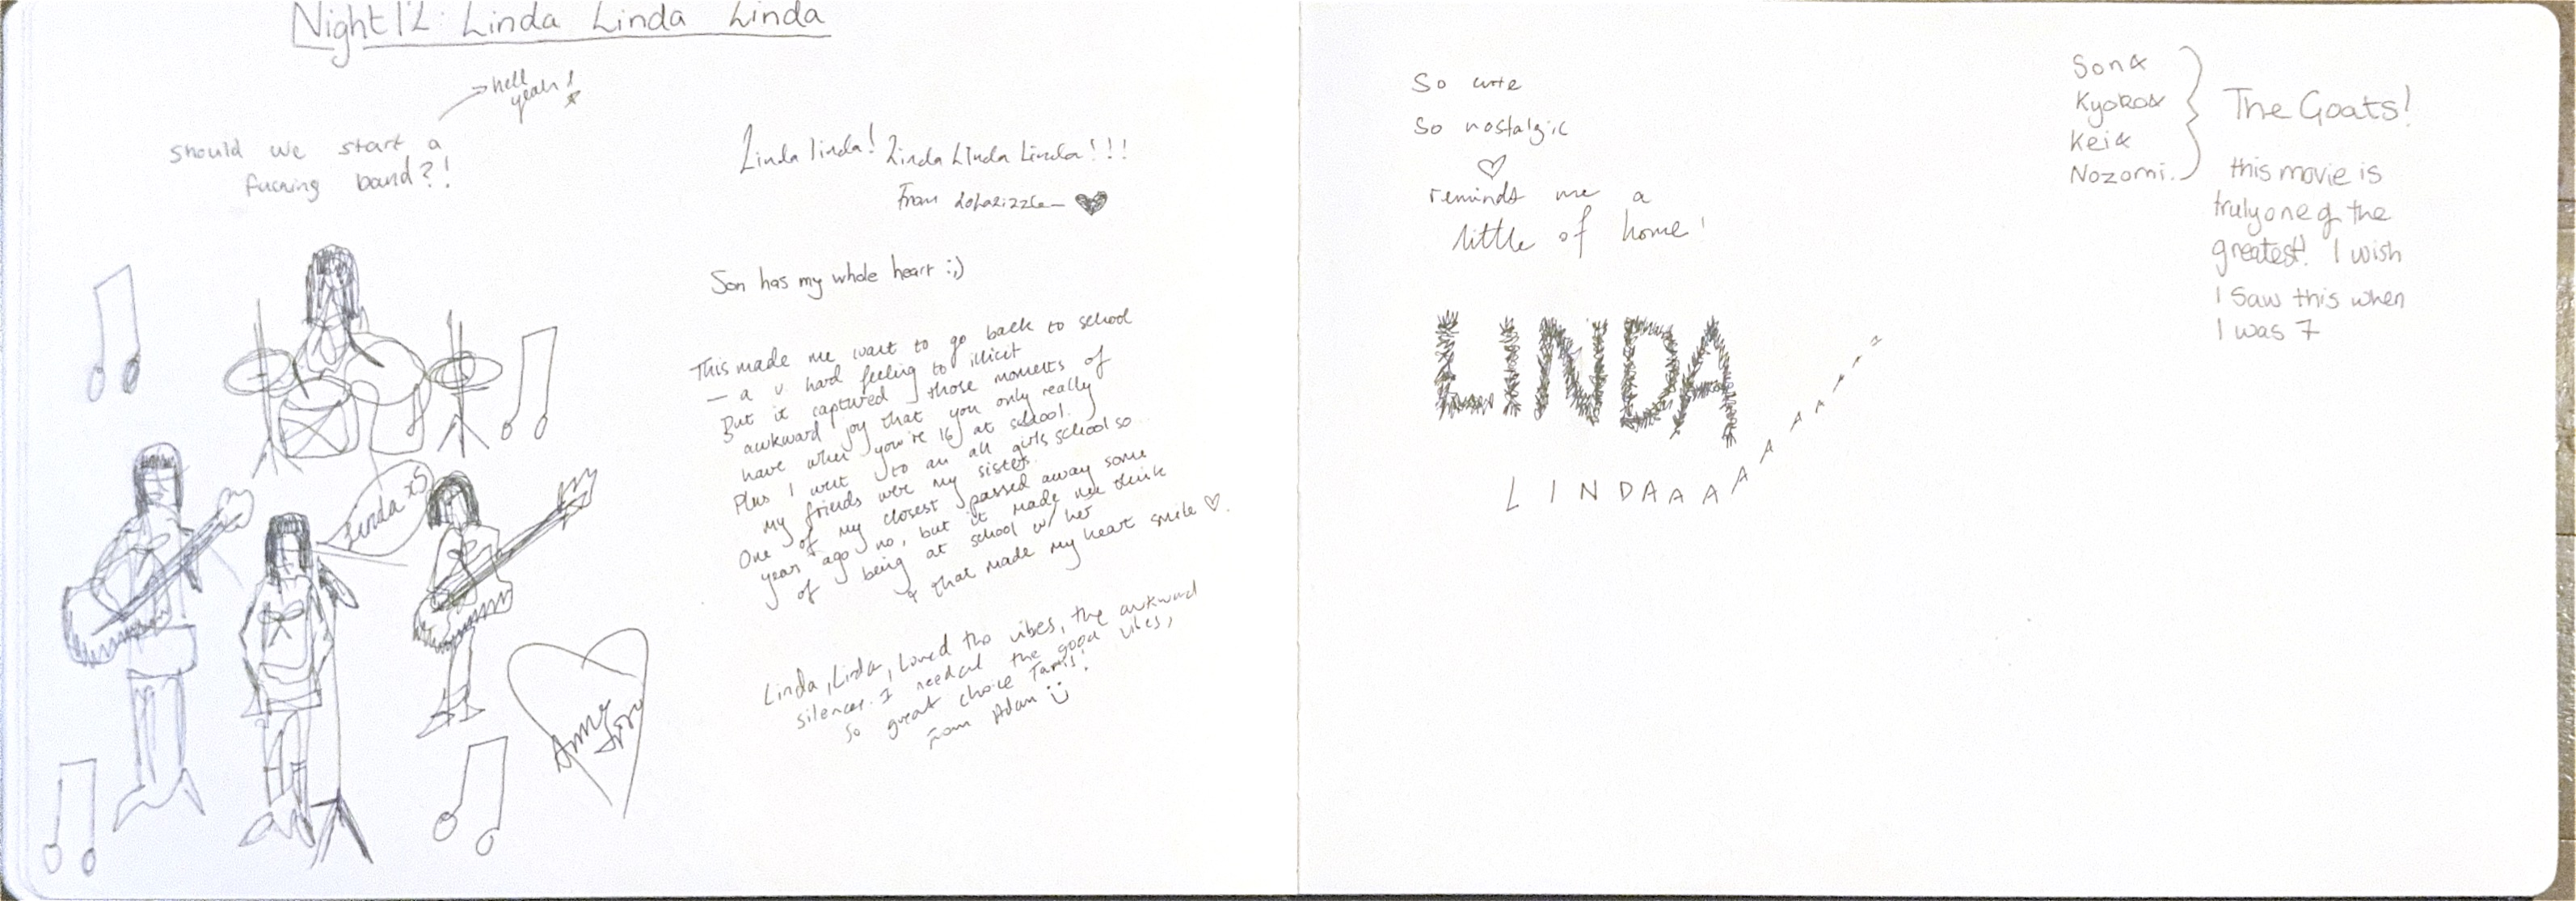 Night 12: Linda Linda Linda
should we start a
fucking band?!
hell
yeah!
Linda x5
Linda linda! Linda Linda Linda!!!
From
Son has my whole heart :,)
This made me want to go back to school
— a v. hard feeling to illicit
But it captured those moments of
awkward joy that you only really
have when you're 16 at school.
Plus I went to an all girls school so
my friends were my sisters.
One of my closest passed away some
years ago no, but it made me think
of being at school w/ her
& that made my heart smile ♡.
Linda, Linda, Loved the vibes, the awkward
silences. I needed the good vibes,
so great choice
From Adam
So cute
So nostalgic
♡
reminds me a
little of home!
LINDA
LINDAAAAAAAAAAA
Son &
Kyoko &
Kei &
Nozomi.
The Goats!
this movie is
truly one of the
greatest! I wish
I saw this when
I was 7